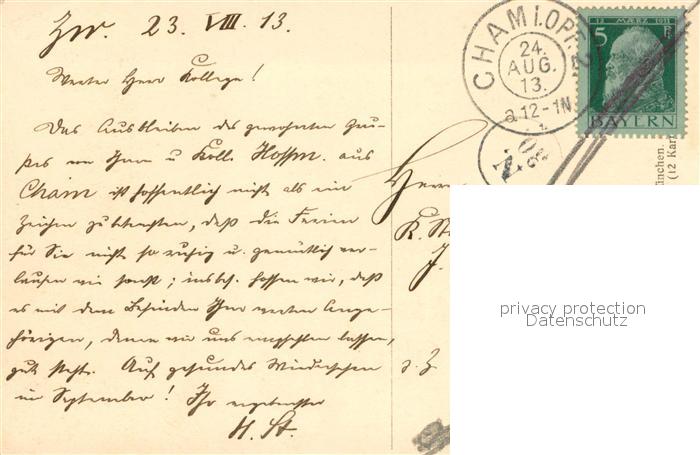 Zw. 23. VIII. 13.
Werter Herr Kollege!
Das Ausbleiben des gewohnten Gru-
ßes von Ihnen u Koll. Hoffm. aus
Cham ist hoffentlich nicht als ein
Zeichen zu betrachten, daß die Ferien
für Sie nicht so ruhig u. gemütlich ver-
laufen wie sonst; insbes. hoffen wir, daß
es mit dem Befinden Ihrer werten Ange-
hörigen, denen wir uns empfehlen lassen,
gut steht. Auf gesundes Wiedersehen
im September! Ihr ergebenster
H. St.
CHAM I.OPF. 2
24.
AUG.
13.
12-1N
12 MÄRZ 1911
5 Pf
BAYERN
Herrn
K. St
z. Z
ünchen.
(12 Kar
privacy protection
Datenschutz